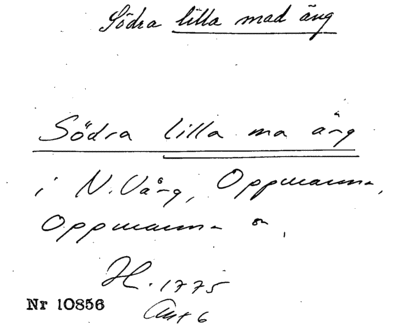 Södra lilla mad äng
Södra lilla ma äng
i N. Vång, Oppmanna,
Oppmanna sn,
H. 1775
Akt 6
Nr 10856